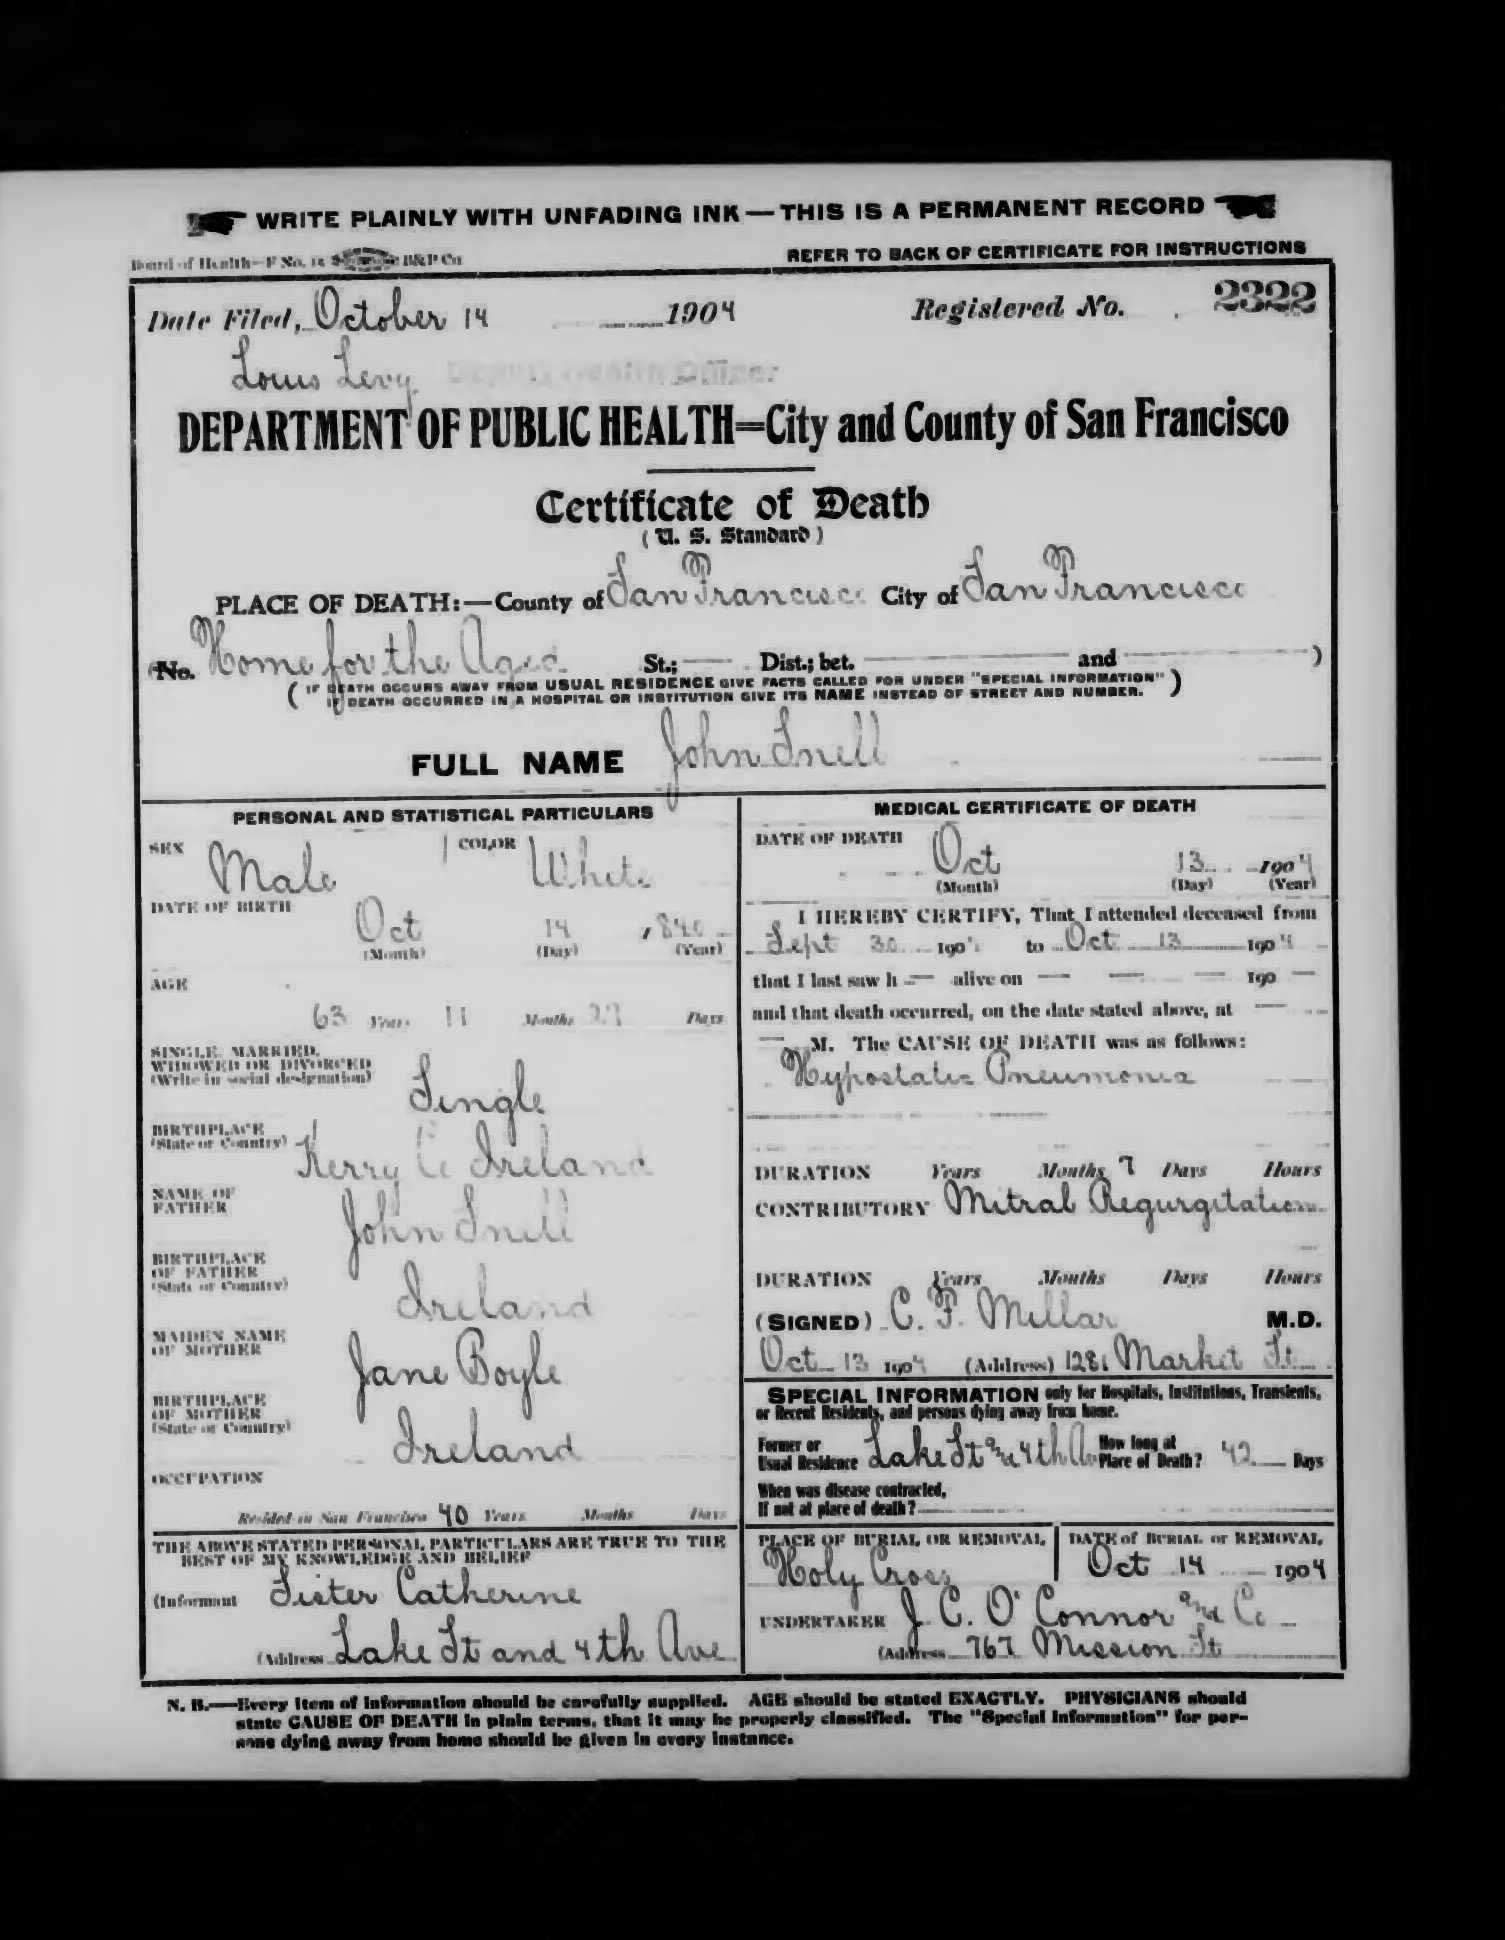 WRITE PLAINLY WITH UNFADING INK — THIS IS A PERMANENT RECORD
Board of Health—F No. 15 B&P Co
REFER TO BACK OF CERTIFICATE FOR INSTRUCTIONS
Date Filed, October 14 1904 Registered No. 2322
Louis Levy Deputy Health Officer
DEPARTMENT OF PUBLIC HEALTH=City and County of San Francisco
Certificate of Death
( U. S. Standard )
PLACE OF DEATH:—County of San Francisco City of San Francisco
(No. Home for the Aged St.; Dist.; bet. and )
( IF DEATH OCCURS AWAY FROM USUAL RESIDENCE GIVE FACTS CALLED FOR UNDER "SPECIAL INFORMATION" )
IF DEATH OCCURRED IN A HOSPITAL OR INSTITUTION GIVE ITS NAME INSTEAD OF STREET AND NUMBER.
FULL NAME John Snell
PERSONAL AND STATISTICAL PARTICULARS
SEX Male COLOR White
DATE OF BIRTH
Oct 14 1840
(Month) (Day) (Year)
AGE
63 Years 11 Months 29 Days
SINGLE, MARRIED,
WIDOWED OR DIVORCED
(Write in social designation)
Single
BIRTHPLACE
(State or Country)
Kerry Co Ireland
NAME OF
FATHER
John Snell
BIRTHPLACE
OF FATHER
(State or Country)
Ireland
MAIDEN NAME
OF MOTHER
Jane Boyle
BIRTHPLACE
OF MOTHER
(State or Country)
Ireland
OCCUPATION
Resided in San Francisco 40 Years Months Days
THE ABOVE STATED PERSONAL PARTICULARS ARE TRUE TO THE
BEST OF MY KNOWLEDGE AND BELIEF
(Informant Sister Catherine
(Address Lake St and 4th Ave
MEDICAL CERTIFICATE OF DEATH
DATE OF DEATH
Oct 13 1904
(Month) (Day) (Year)
I HEREBY CERTIFY, That I attended deceased from
Sept 30 1904 to Oct 13 1904
that I last saw h — alive on — 190 —
and that death occurred, on the date stated above, at —
— M. The CAUSE OF DEATH was as follows:
Hypostatic Pneumonia
DURATION Years Months 7 Days Hours
CONTRIBUTORY Mitral Regurgitation
DURATION Years Months Days Hours
(SIGNED) C. F. Millar M.D.
Oct 13 1904 (Address) 1281 Market St
SPECIAL INFORMATION only for Hospitals, Institutions, Transients,
or Recent Residents, and persons dying away from home.
Former or
Usual Residence Lake St and 4th Av
How long at
Place of Death? 42 Days
When was disease contracted,
If not at place of death?
PLACE OF BURIAL OR REMOVAL
Holy Cross
DATE of BURIAL or REMOVAL
Oct 14 1904
UNDERTAKER J. C. O'Connor and Co
(Address 767 Mission St
N. B.—Every item of information should be carefully supplied. AGE should be stated EXACTLY. PHYSICIANS should
state CAUSE OF DEATH in plain terms, that it may be properly classified. The "Special Information" for per-
sons dying away from home should be given in every instance.